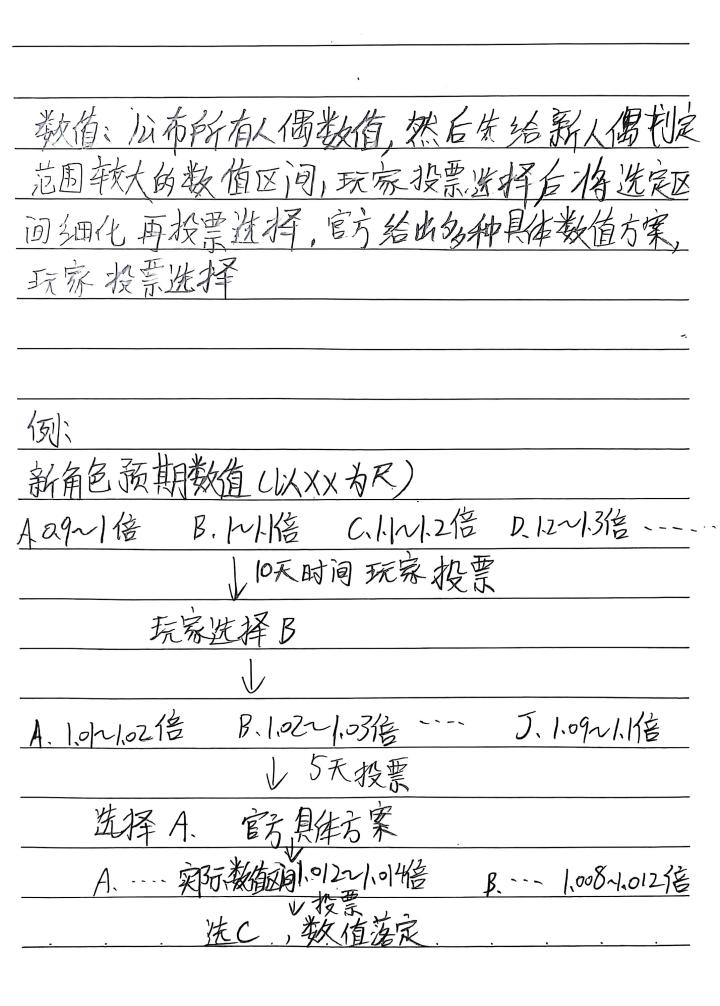 数值：公布所有人偶数值，然后先给新人偶判定
范围较大的数值区间，玩家投票选择后将选定区
间细化再投票选择，官方给出多种具体数值方案，
玩家投票选择
例：
新角色预期数值（以XX为尺）
A.0.9～1倍 B.1～1.1倍 C.1.1～1.2倍 D.1.2～1.3倍 ……
↓10天时间 玩家投票
玩家选择B
↓
A.1.01～1.02倍 B.1.02～1.03倍 …… J.1.09～1.1倍
↓ 5天投票
选择A. 官方具体方案
↓
A.…… 实际数值区间1.012～1.014倍 B.… 1.008～1.012倍
↓投票
选C，数值落定